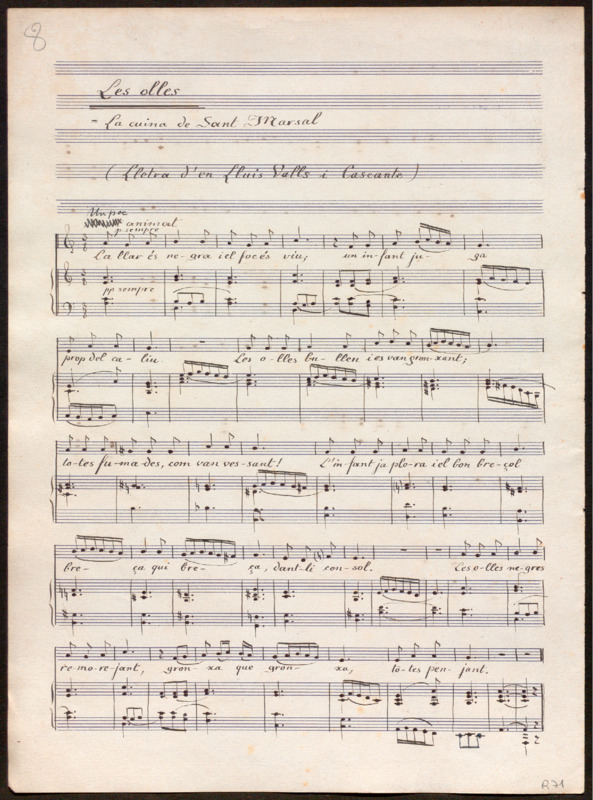 8
Les olles
- La cuina de Sant Marsal
(Lletra d'en Lluis Valls i Cascante)
Un poc
animat
p sempre
La llar és ne-gra i el foc és viu; un in-fant ju- ga
pp sempre
prop del ca-liu Les o-lles bu-llen i es van gron-xant;
to-tes fu-ma-des, com van ves-sant! L'in-fant ja plo-ra i el bon bre-çol
bre- ça qui bre- ça, dant-li con-sol. Les o-lles ne-gres
re-mo-re-jant, gron-xa que gron- xa, to-tes pen-jant.
R.71